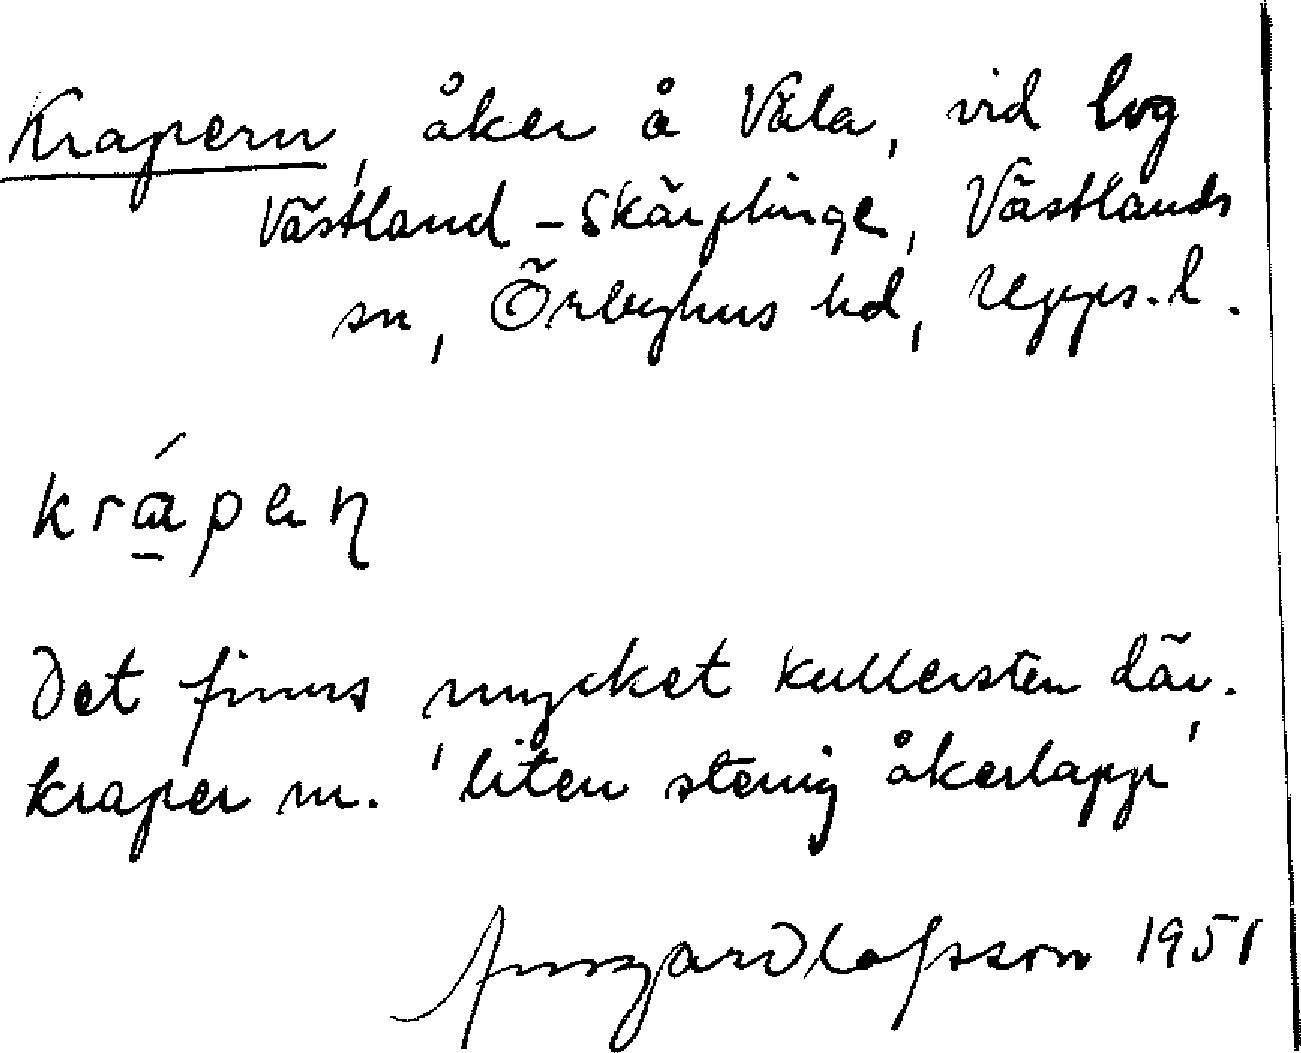 Krapern, åker å Våla, vid lvg
Västland - Skärplinge, Västlands
sn, Örbyhus hd, Upps. l.
krápen
Det finns mycket kullersten där.
kraper m. 'liten stenig åkerlapp'
Olofsson 1951